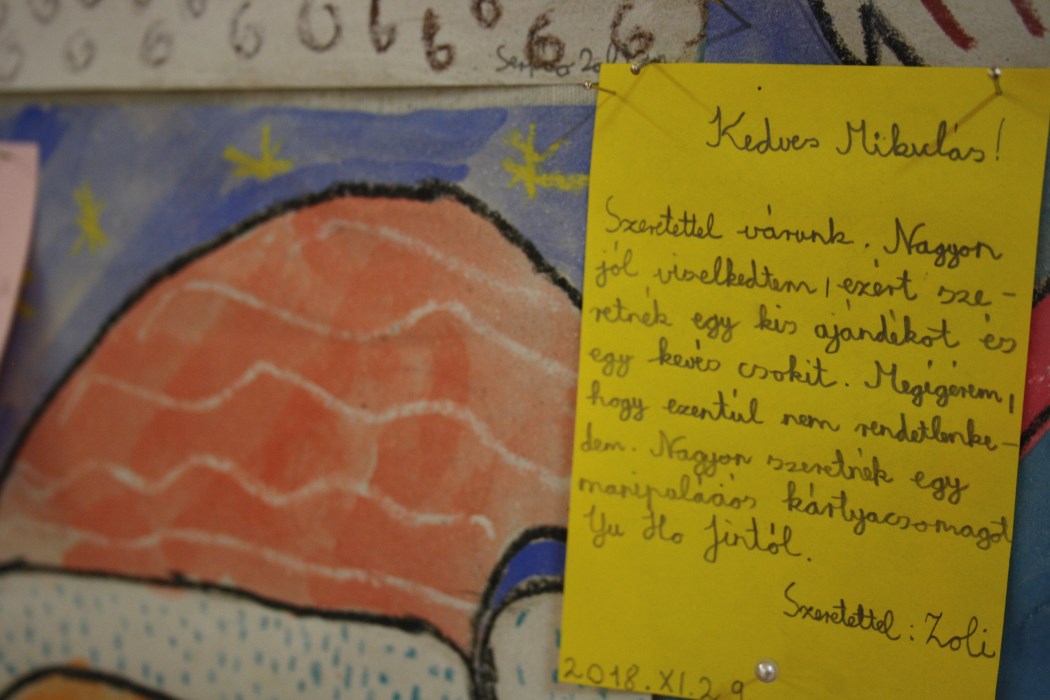 Kedves Mikulás!
Szeretettel várunk. Nagyon
jól viselkedtem, ezért sze-
retnék egy kis ajándékot és
egy kevés csokit. Megígérem,
hogy ezentúl nem rendetlenke-
dem. Nagyon szeretnék egy
manipalációs kártyacsomagot
Yu Ho Jintól.
Szeretettel: Zoli
2018. XI. 29